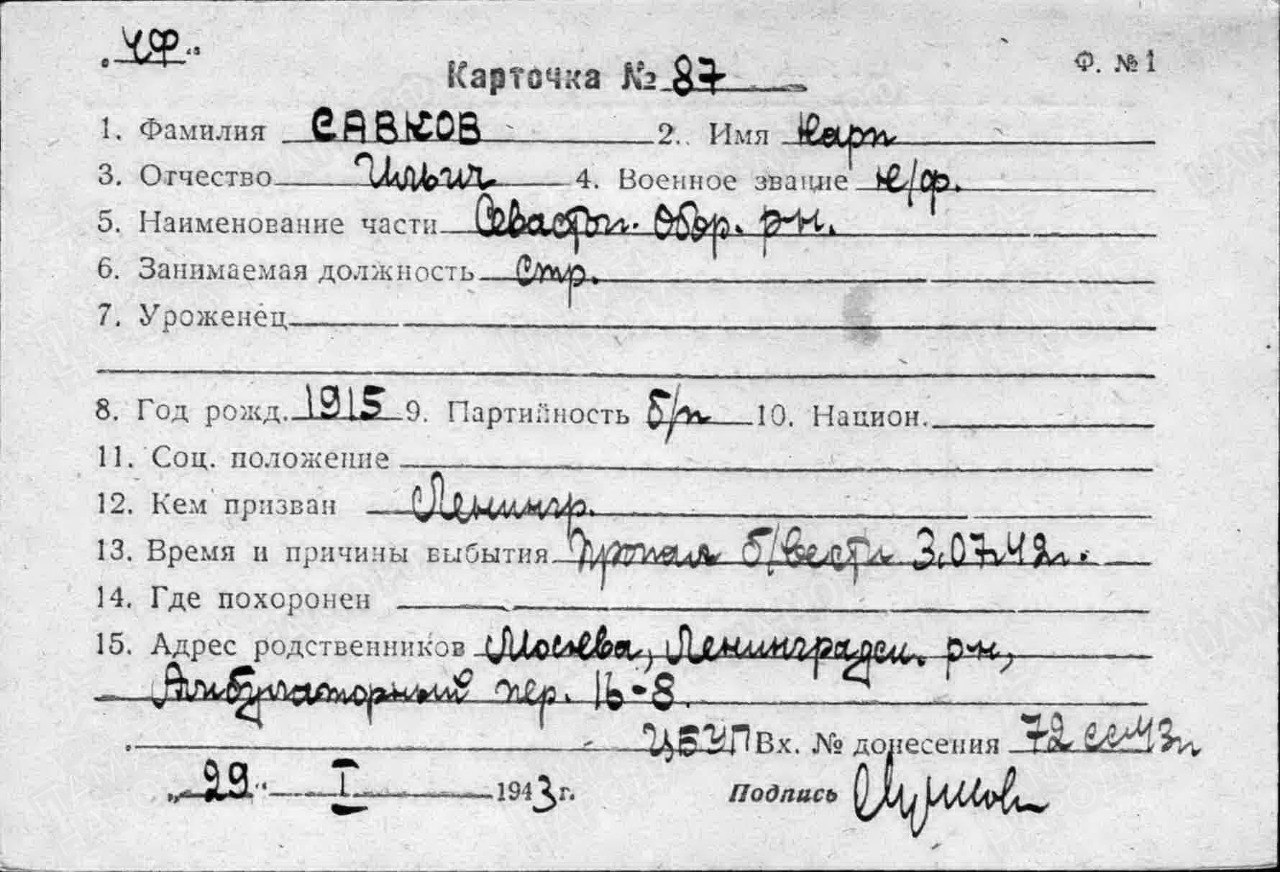 „ЧФ“
Ф. №1
Карточка № 87
1. Фамилия САВКОВ 2. Имя Карп
3. Отчество Ильич 4. Военное звание к/ф.
5. Наименование части Севастоп. Обор. р-н.
6. Занимаемая должность Стр.
7. Уроженец
8. Год рожд. 1915 9. Партийность б/п 10. Национ.
11. Соц. положение
12. Кем призван Ленингр.
13. Время и причины выбытия Пропал б/вести 3.07.42г.
14. Где похоронен
15. Адрес родственников Москва, Ленинградск. р-н,
Амбулаторный пер. 16-8.
ЦБУП Вх. № донесения 72
„29“ I 1943г. Подпись